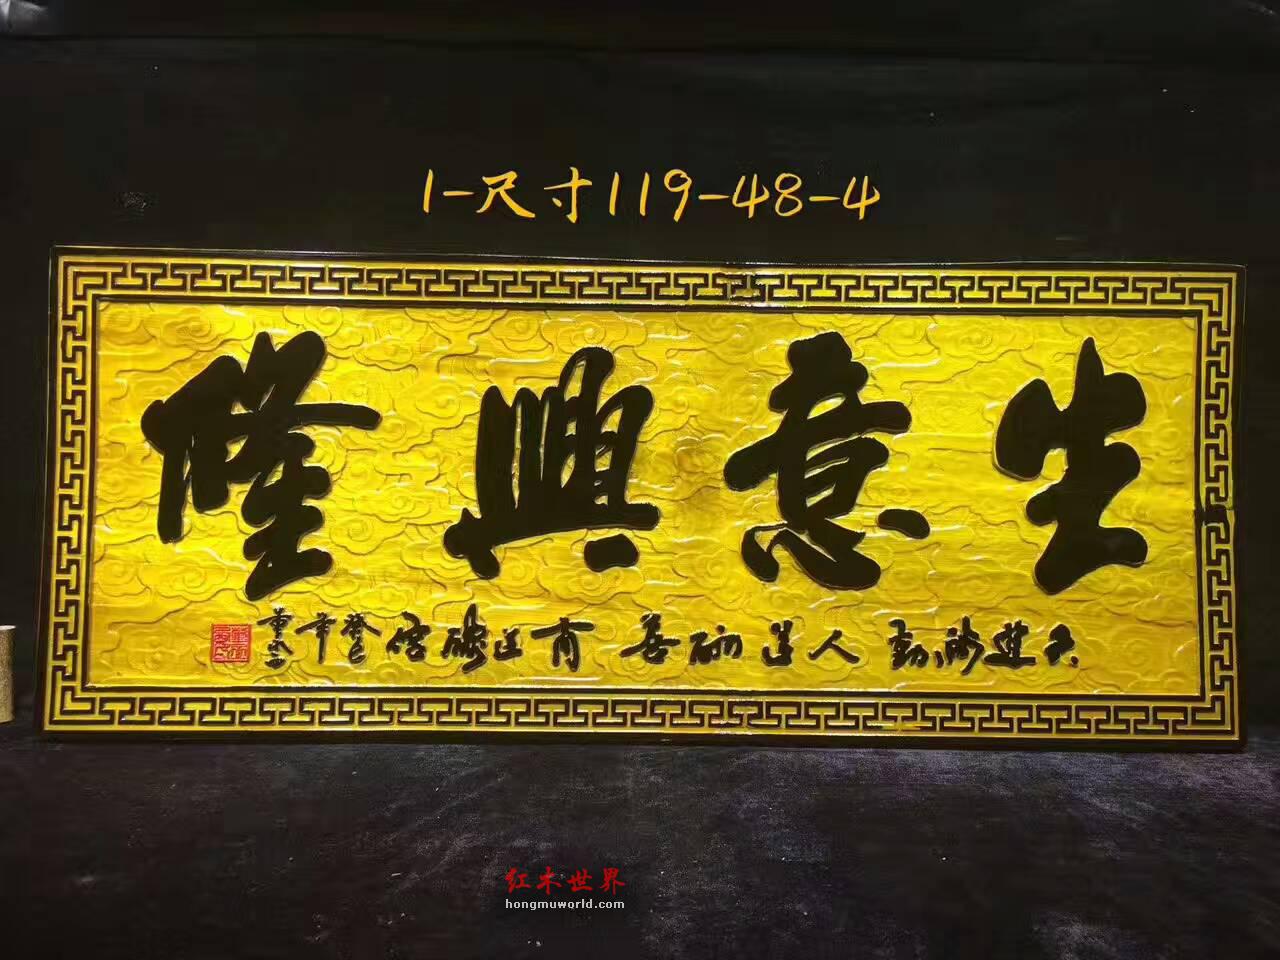 1-尺寸119-48-4
生意興隆
天道酬勤 人道酬善 商道酬信
红木世界
hongmuworld.com